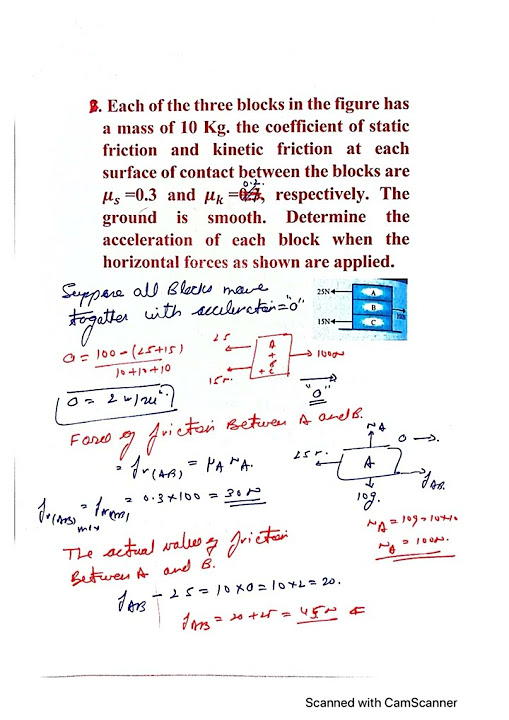 3. Each of the three blocks in the figure has
a mass of 10 Kg. the coefficient of static
friction and kinetic friction at each
surface of contact between the blocks are
μs =0.3 and μk = 0.2, respectively. The
ground is smooth. Determine the
acceleration of each block when the
horizontal forces as shown are applied.
Suppose all Blocks move
togather with accleration = "a"
25N A
B 100N
15N C
a = 100 - (25+15)
10+10+10
a = 2 m/sec².
25
15N.
A
+
B
+ C
100N
"a"
Force of friction Between A and B.
= fr(AB) = μA NA.
fr(AB) max = fr(AB) = 0.3×100 = 30N
NA
a
25N.
A
fAB.
10g.
NA = 10g = 10×10
NA = 100N.
The actual value of friction
Between A and B.
fAB - 25 = 10×a = 10×2 = 20.
fAB = 20 + 25 = 45N
Scanned with CamScanner